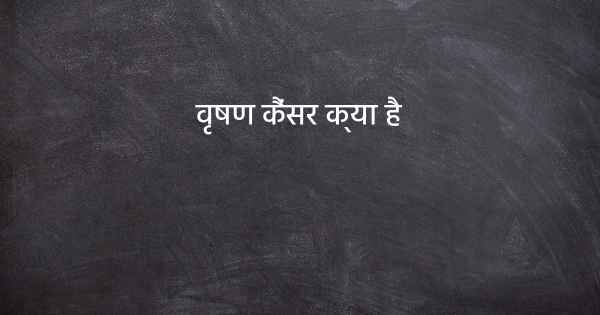 वृषण कैंसर क्या है